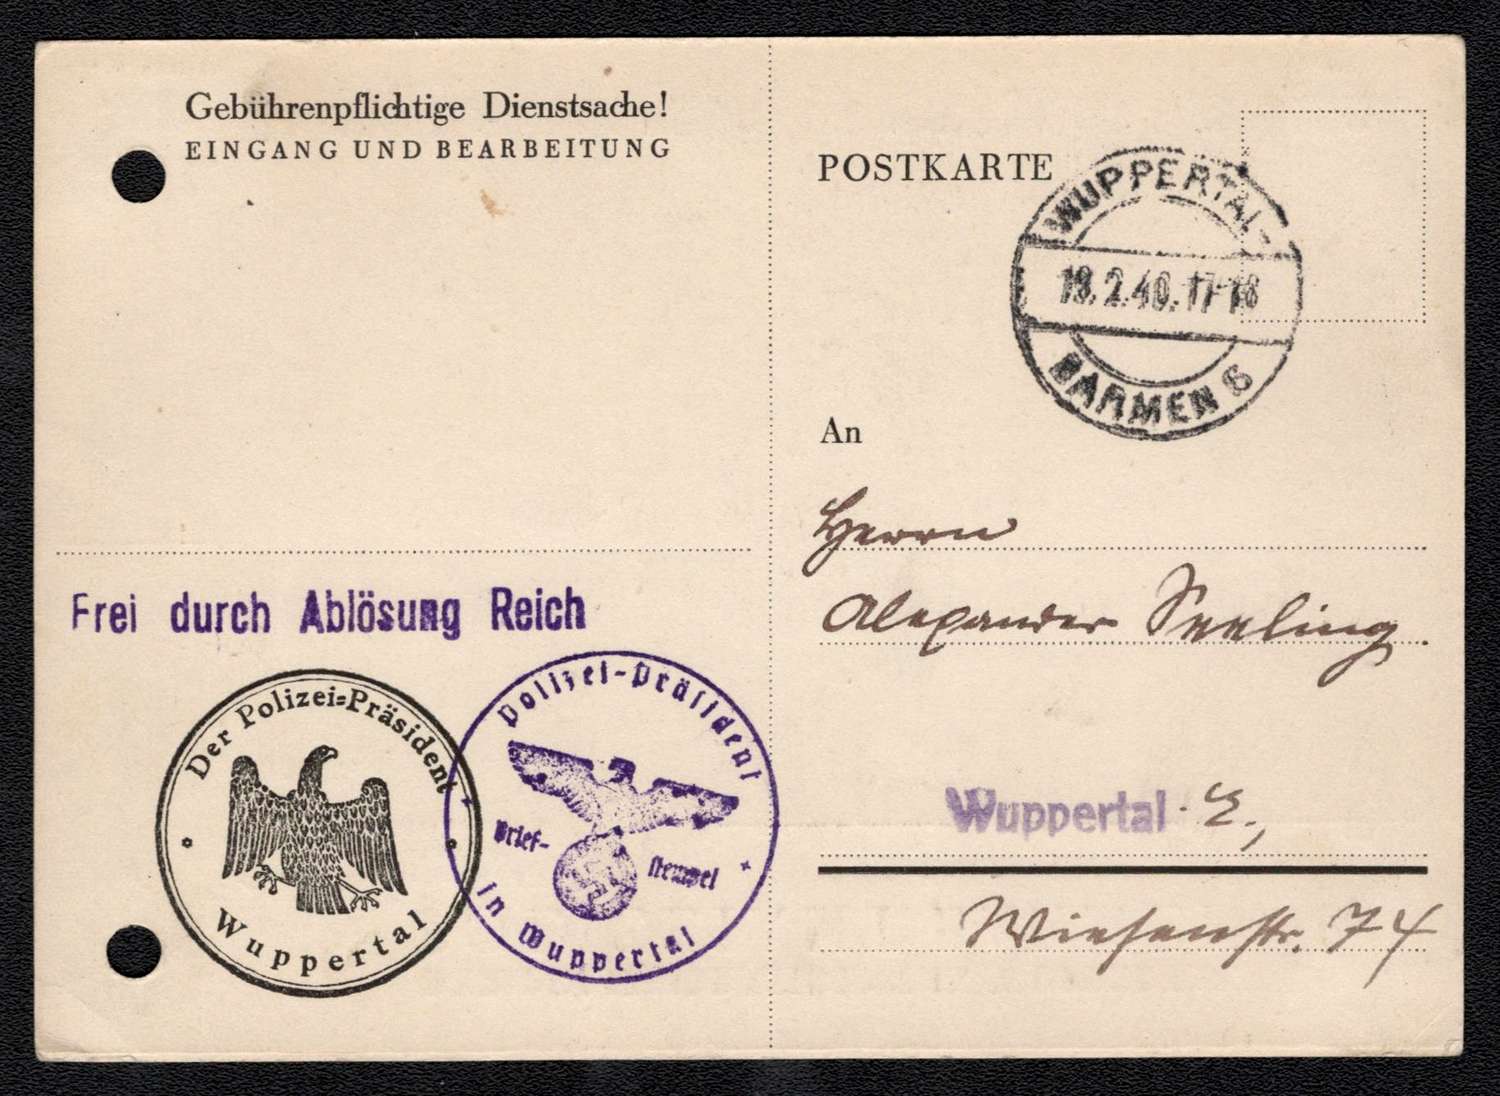 Gebührenpflichtige Dienstsache!
EINGANG UND BEARBEITUNG
POSTKARTE
WUPPERTAL-
19.2.40.17-18
BARMEN
An
Herrn
Alexander Seeling
Frei durch Ablösung Reich
Der Polizei-Präsident
Wuppertal
Polizei-Präsident
Brief-
stempel
in Wuppertal
Wuppertal - E.,
Wiesenstr. 74